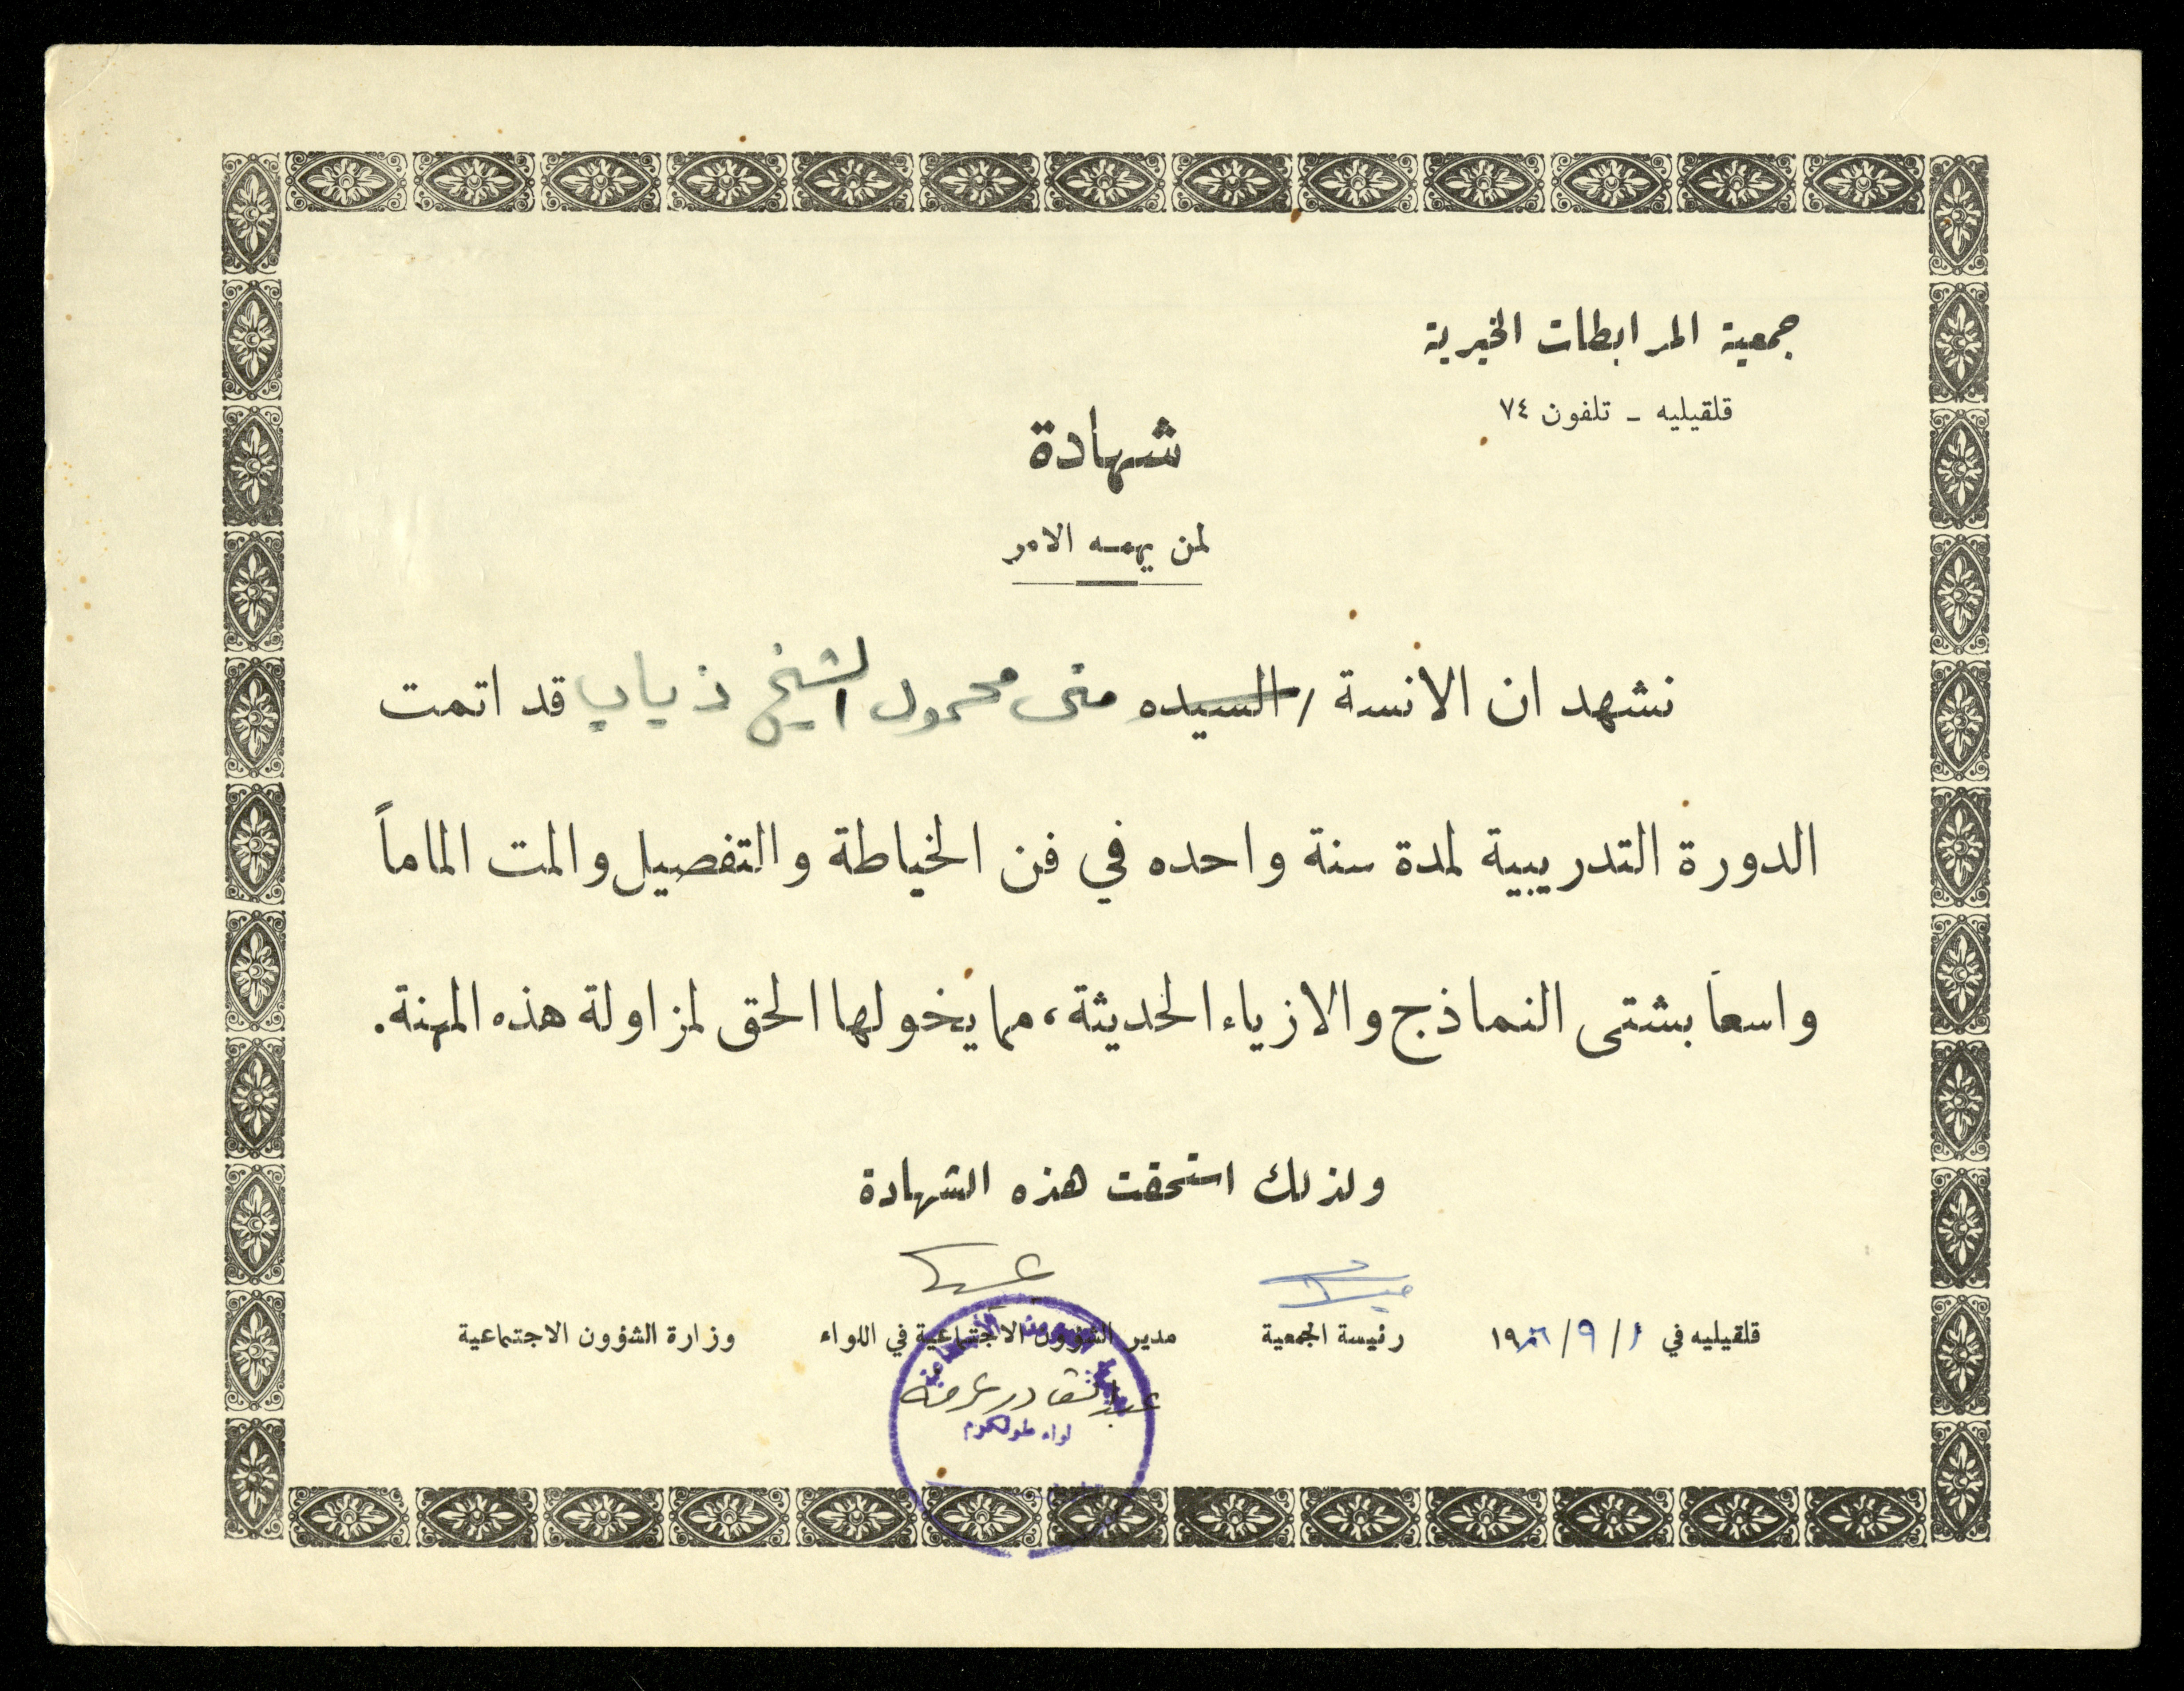 جمعية المرابطات الخيرية
قلقيليه - تلفون ٧٤
شهادة
لمن يهمه الامر
نشهد ان الانسة / السيده منى محمود الشيخ ذياب قد اتمت
الدورة التدريبية لمدة سنة واحده في فن الخياطة والتفصيل والمت الماماً
واسعاً بشتى النماذج والازياء الحديثة، مما يخولها الحق لمزاولة هذه المهنة.
ولذلك استحقت هذه الشهادة
قلقيليه في ١/٩/١٩ رئيسة الجمعية مدير الشؤون الاجتماعية في اللواء وزارة الشؤون الاجتماعية
عبد القادر عرفه
لواء طولكرم